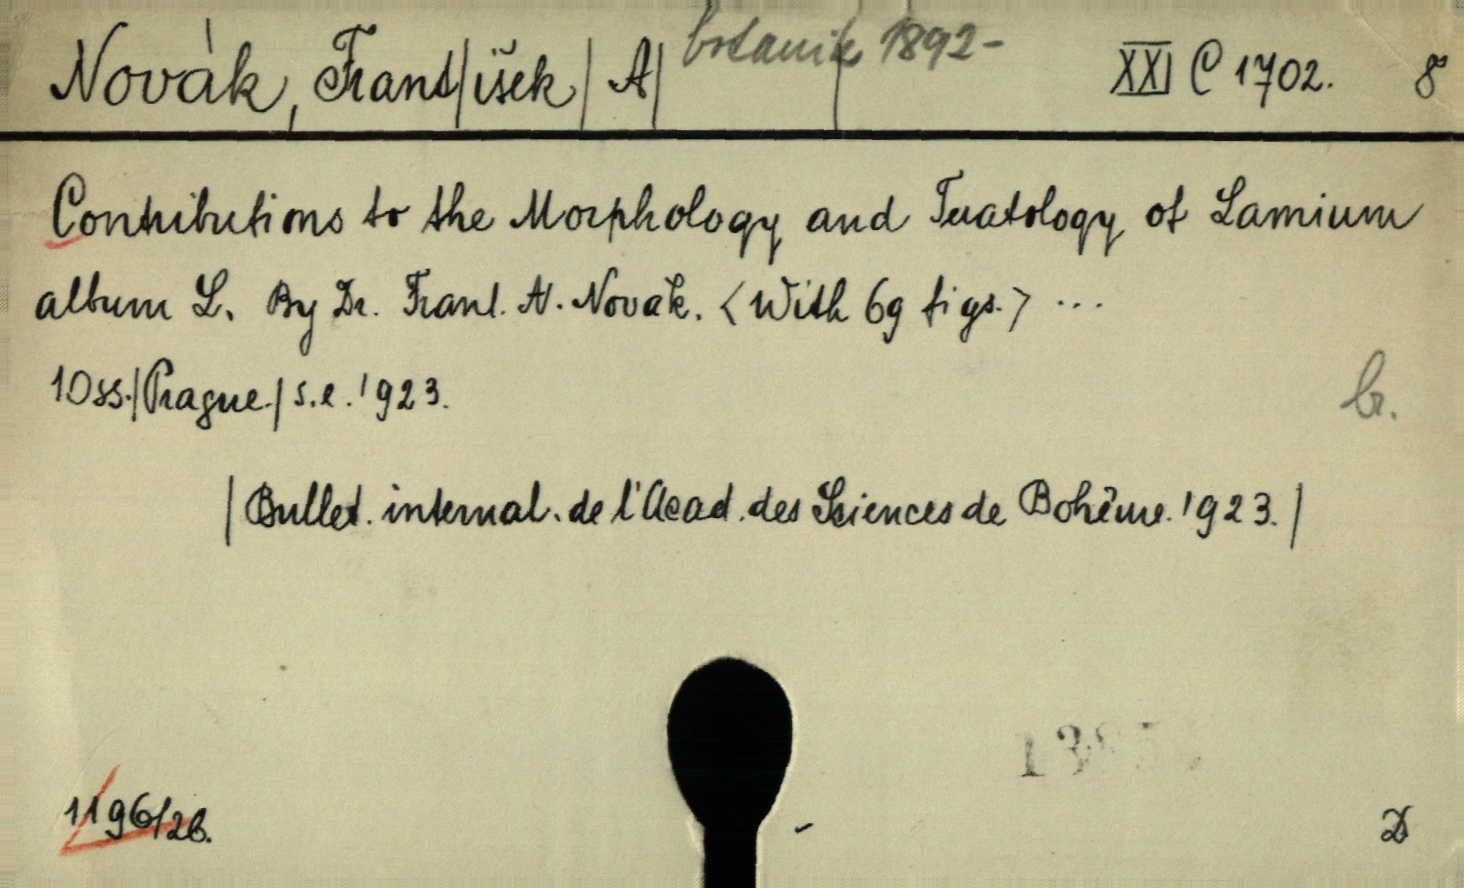 Novák, Frant|išek| A| botanik 1892- XXI C 1702. 8
Contributions to the Morphology and Teratology of Lamium
album L. By Dr. Frant. A. Novák. <With 69 figs.> ...
10 ss.|Prague.| s.e. 1923.
br.
|Bullet. internat. de l'Acad. des Sciences de Bohême. 1923.|
1196/26.
D